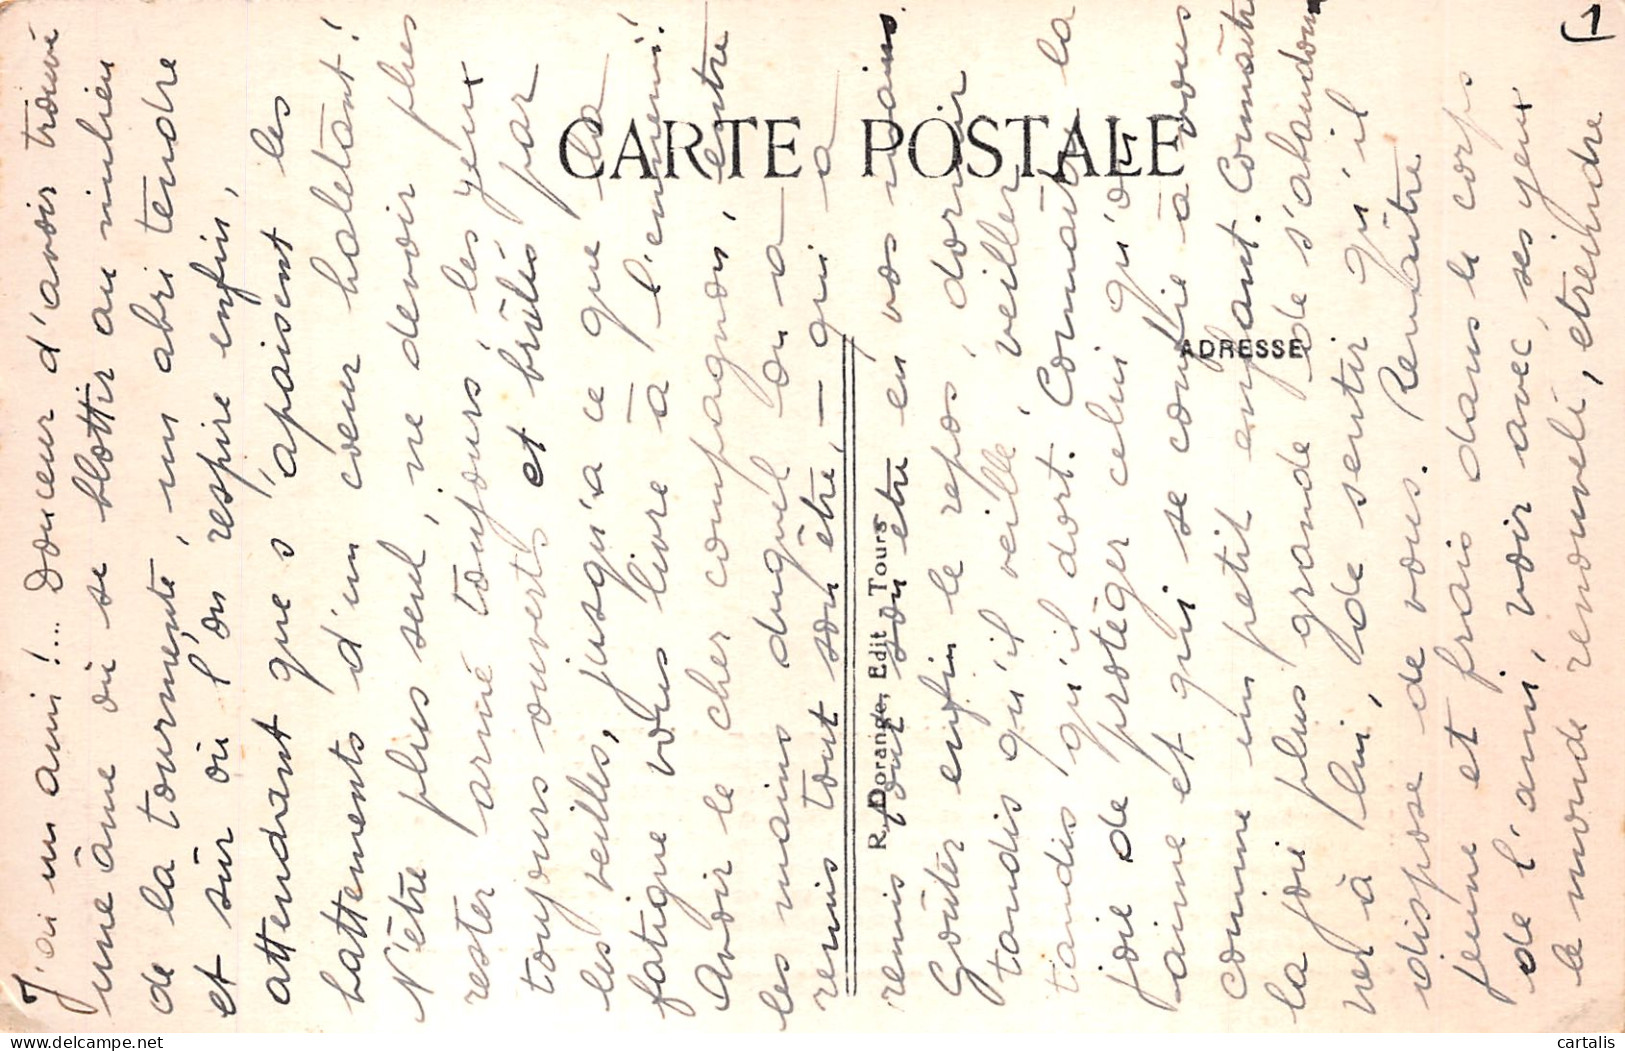 1
J'ai un ami !... Douceur d'avoir trouvé
une âme où se blottir au milieu
de la tourmente, un abri tendre
et sûr où l'on respire enfin,
attendant que s'apaisent les
battements d'un cœur haletant !
N'être plus seul, ne devoir plus
rester armé toujours, les yeux
toujours ouverts et brûlés par
les veilles, jusqu'à ce que la
fatigue vous livre à l'ennemi !
Avoir le cher compagnon, entre
les mains duquel on a
remis tout son être, — qui a
remis tout son être en vos mains.
Goûter enfin le repos, dormir
tandis qu'il veille, veiller
tandis qu'il dort. Connaître la
joie de protéger celui qu'on
aime et qui se confie à vous
comme un petit enfant. Connaître
la joie plus grande de s'abandon
ner à lui, de sentir qu'il
dispose de vous. Renaître
jeune et frais dans le corps
de l'ami, voir avec ses yeux
le monde renouvelé, étreindre
CARTE POSTALE
ADRESSE
R. Dorange Edit Tours
cartalis